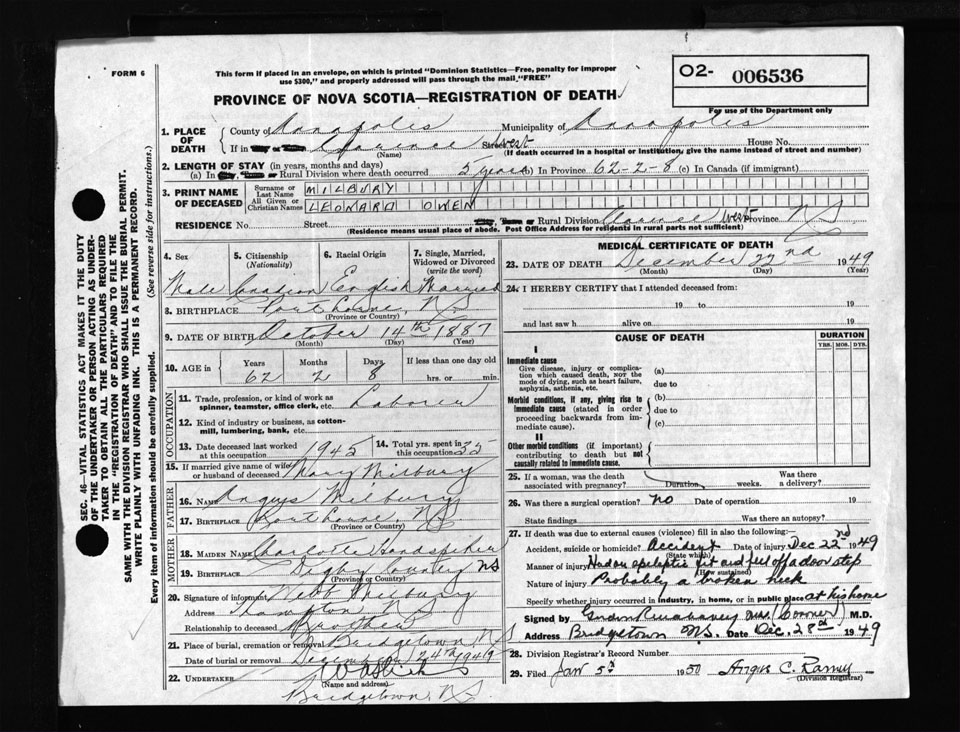 FORM 6
This form if placed in an envelope, on which is printed "Dominion Statistics—Free, penalty for improper
use $300," and properly addressed will pass through the mail "FREE"
O2- 006536
For use of the Department only
PROVINCE OF NOVA SCOTIA—REGISTRATION OF DEATH
1. PLACE OF DEATH
County of Annapolis Municipality of Annapolis
If in Clarence West Street House No.
(Name) (If death occurred in a hospital or institution, give the name instead of street and number)
2. LENGTH OF STAY (in years, months and days)
(a) In Rural Division where death occurred 5 years (b) In Province 62-2-8 (c) In Canada (if immigrant)
3. PRINT NAME OF DECEASED
Surname or Last Name MILBURY
All Given or Christian Names LEONARD OWEN
RESIDENCE No. Street Rural Division Clarence West Province NS
(Residence means usual place of abode. Post Office Address for residents in rural parts not sufficient)
4. Sex 5. Citizenship (Nationality) 6. Racial Origin 7. Single, Married, Widowed or Divorced (write the word)
Male Canadian English Married
8. BIRTHPLACE Port Lorne, NS
(Province or Country)
9. DATE OF BIRTH October 14th 1887
(Month) (Day) (Year)
10. AGE in Years Months Days If less than one day old
62 2 8 hrs. or min.
OCCUPATION
11. Trade, profession, or kind of work as spinner, teamster, office clerk, etc. Laborer
12. Kind of industry or business, as cotton-mill, lumbering, bank, etc.
13. Date deceased last worked at this occupation 1945 14. Total yrs. spent in this occupation 35
15. If married give name of wife or husband of deceased Mary Milbury
FATHER
16. NAME Angus Milbury
17. BIRTHPLACE Port Lorne, NS
(Province or Country)
MOTHER
18. MAIDEN NAME Charlotte Handspiker
19. BIRTHPLACE Digby County NS
(Province or Country)
20. Signature of informant Milbury
Address Hampton, NS
Relationship to deceased Brother
21. Place of burial, cremation or removal Bridgetown NS
Date of burial or removal December 24th 1949
22. UNDERTAKER
(Name and address)
Bridgetown, NS
MEDICAL CERTIFICATE OF DEATH
23. DATE OF DEATH December 22nd 1949
(Month) (Day) (Year)
24. I HEREBY CERTIFY that I attended deceased from:
19 to 19
and last saw h alive on 19
CAUSE OF DEATH DURATION
YRS. MOS. DYS.
I
Immediate cause
Give disease, injury or complication which caused death, NOT the mode of dying, such as heart failure, asphyxia, asthenia, etc.
(a)
due to
Morbid conditions, if any, giving rise to immediate cause (stated in order proceeding backwards from immediate cause).
(b)
due to
(c)
II
Other morbid conditions (if important) contributing to death but not causally related to immediate cause.
25. If a woman, was the death associated with pregnancy? Duration weeks. Was there a delivery?
26. Was there a surgical operation? no Date of operation 19
State findings Was there an autopsy?
27. If death was due to external causes (violence) fill in also the following:
Accident, suicide or homicide? Accident Date of injury Dec 22nd 1949
(State which)
Manner of injury Had an epileptic fit and fell off a door step
(How sustained)
Nature of injury Probably a broken neck
Specify whether injury occurred in industry, in home, or in public place at his home
Signed by (Coroner) M.D.
Address Bridgetown N.S. Date Dec. 28th 1949
28. Division Registrar's Record Number
29. Filed Jan 5th 1950 Angus C. Ramey
(Division Registrar)
SEC. 46—VITAL STATISTICS ACT MAKES IT THE DUTY
OF THE UNDERTAKER OR PERSON ACTING AS UNDER-
TAKER TO OBTAIN ALL THE PARTICULARS REQUIRED
IN THE "REGISTRATION OF DEATH" AND TO FILE THE
SAME WITH THE DIVISION REGISTRAR WHO SHALL ISSUE THE BURIAL PERMIT.
WRITE PLAINLY WITH UNFADING INK. THIS IS A PERMANENT RECORD.
Every item of information should be carefully supplied. (See reverse side for instructions.)